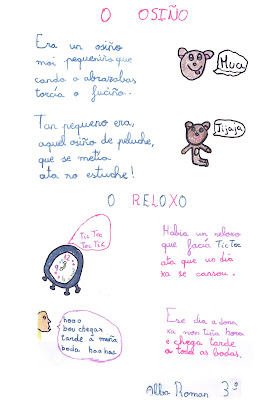 O OSIÑO
Era un osiño
moi pequeniño que
cando o abrazabas
torcía o fuciño.
Muca
Tan pequeno era,
aquel osiño de peluche,
que se metía
ata no estuche!
Jijaja
O RELOXO
Tic Toc
Toc Tic
Había un reloxo
que facía Tic Toc
ata que un día
xa se cansou.
hooo
vou chegar
tarde a miña
boda
Ese día a dona
xa non tiña hora
e chega tarde
a toda as bodas.
Alba Roman 3º